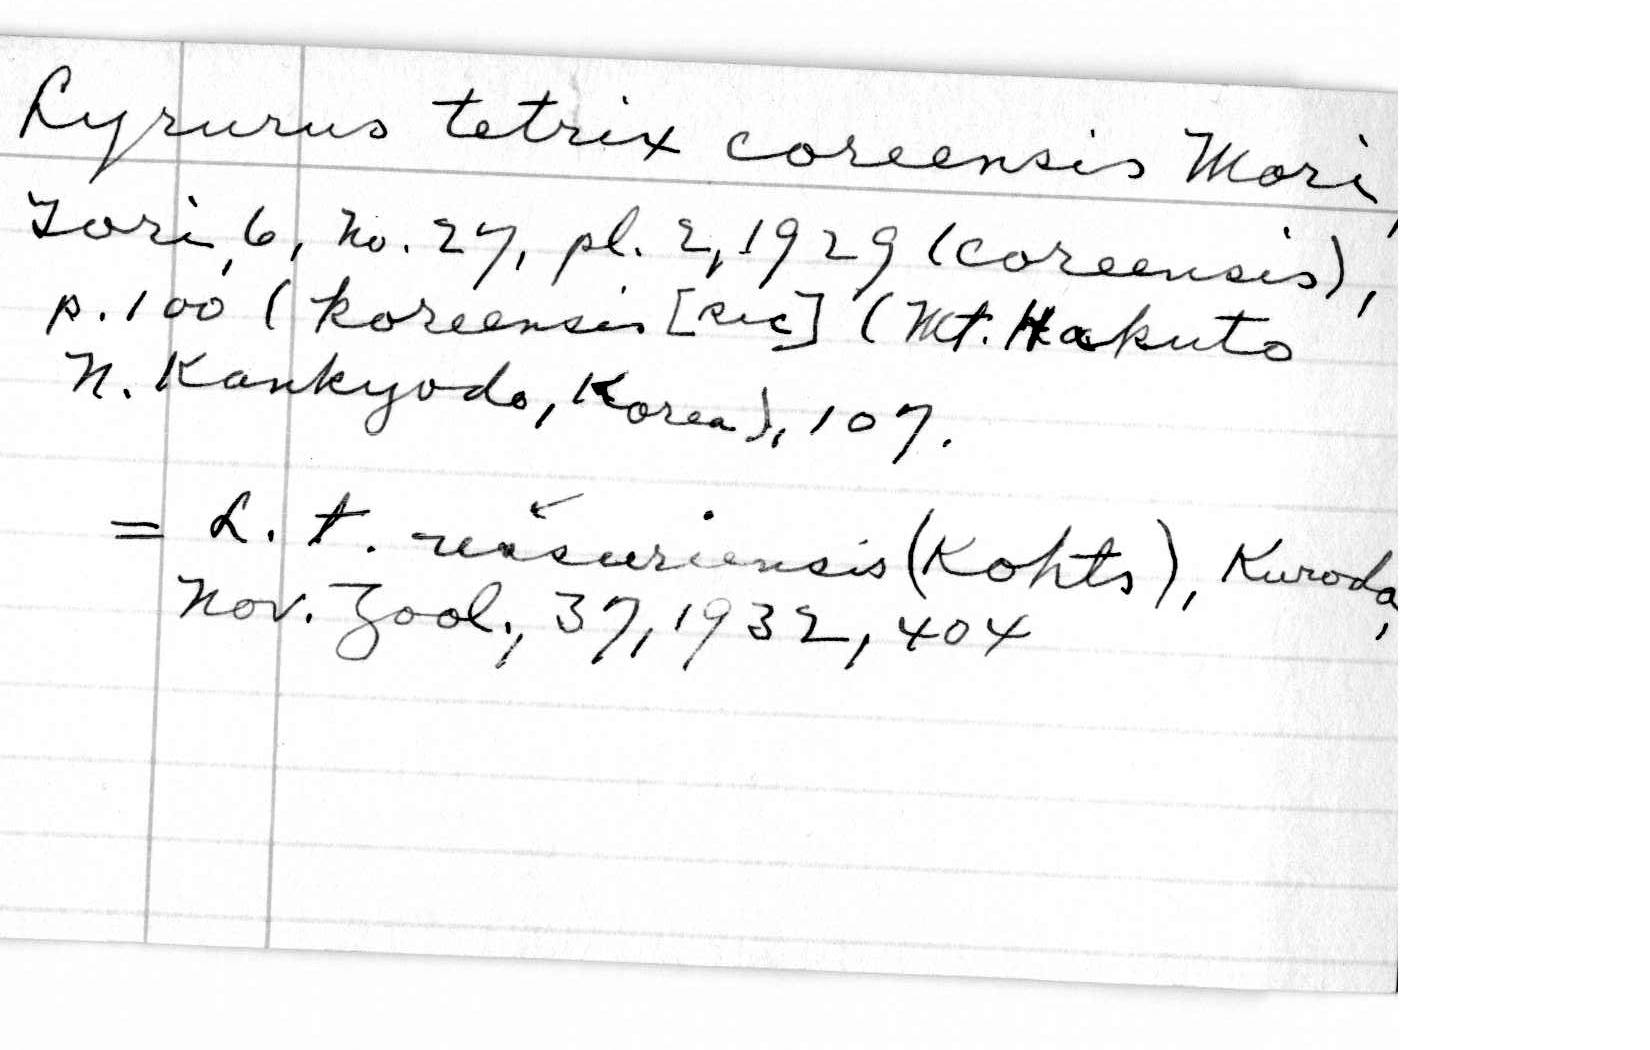 Lyrurus tetrix coreensis Mori,
Tori, 6, No. 27, pl. 2, 1929 (coreensis),
p. 100 (koreensis [sic] (Mt. Hakuto
N. Kankyodo, Korea), 107.
= L. t. ussuriensis (Kohts), Kuroda,
Nov. Zool., 37, 1932, 404